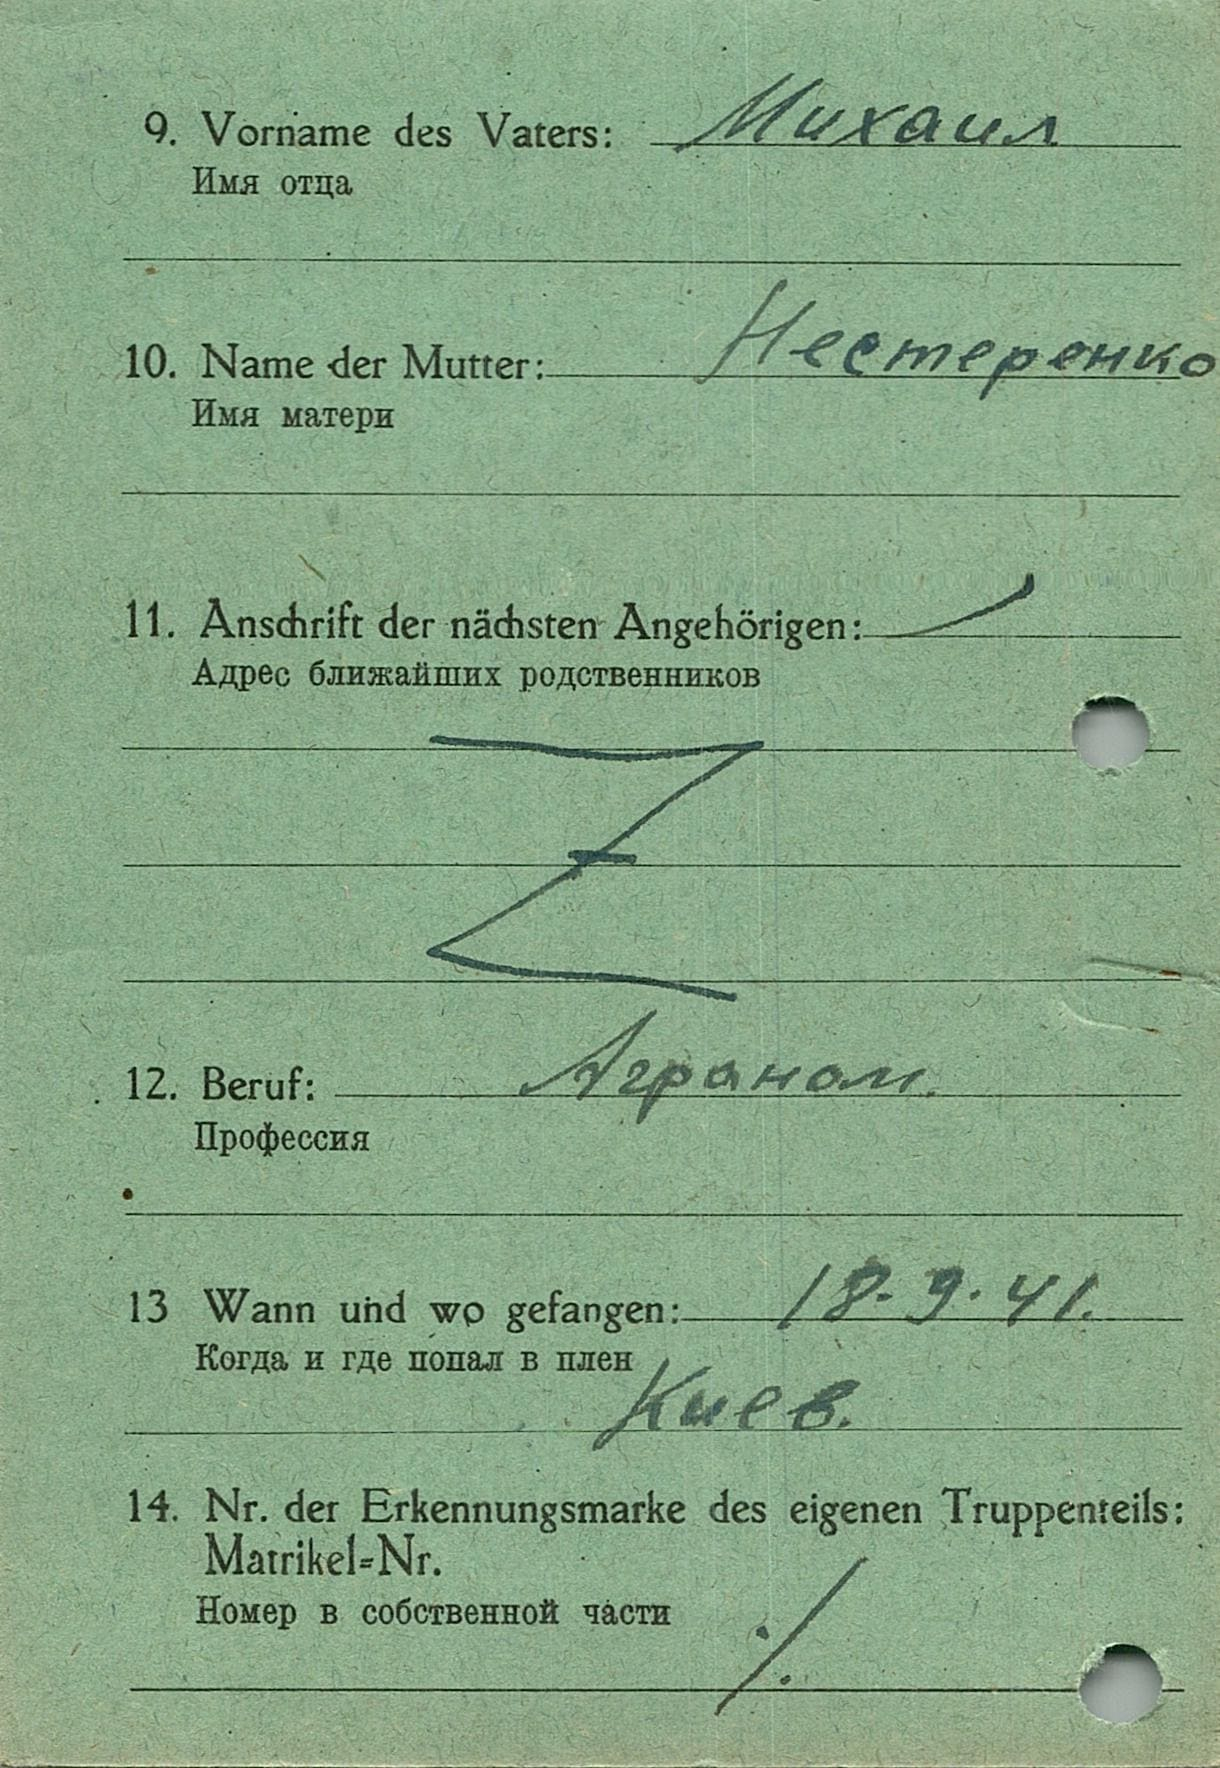 9. Vorname des Vaters: Михаил
Имя отца
10. Name der Mutter: Нестеренко
Имя матери
11. Anschrift der nächsten Angehörigen:
Адрес ближайших родственников
12. Beruf: Аграном.
Профессия
13 Wann und wo gefangen: 18.9.41.
Когда и где попал в плен
Киев.
14. Nr. der Erkennungsmarke des eigenen Truppenteils:
Matrikel=Nr.
Номер в собственной части
./.